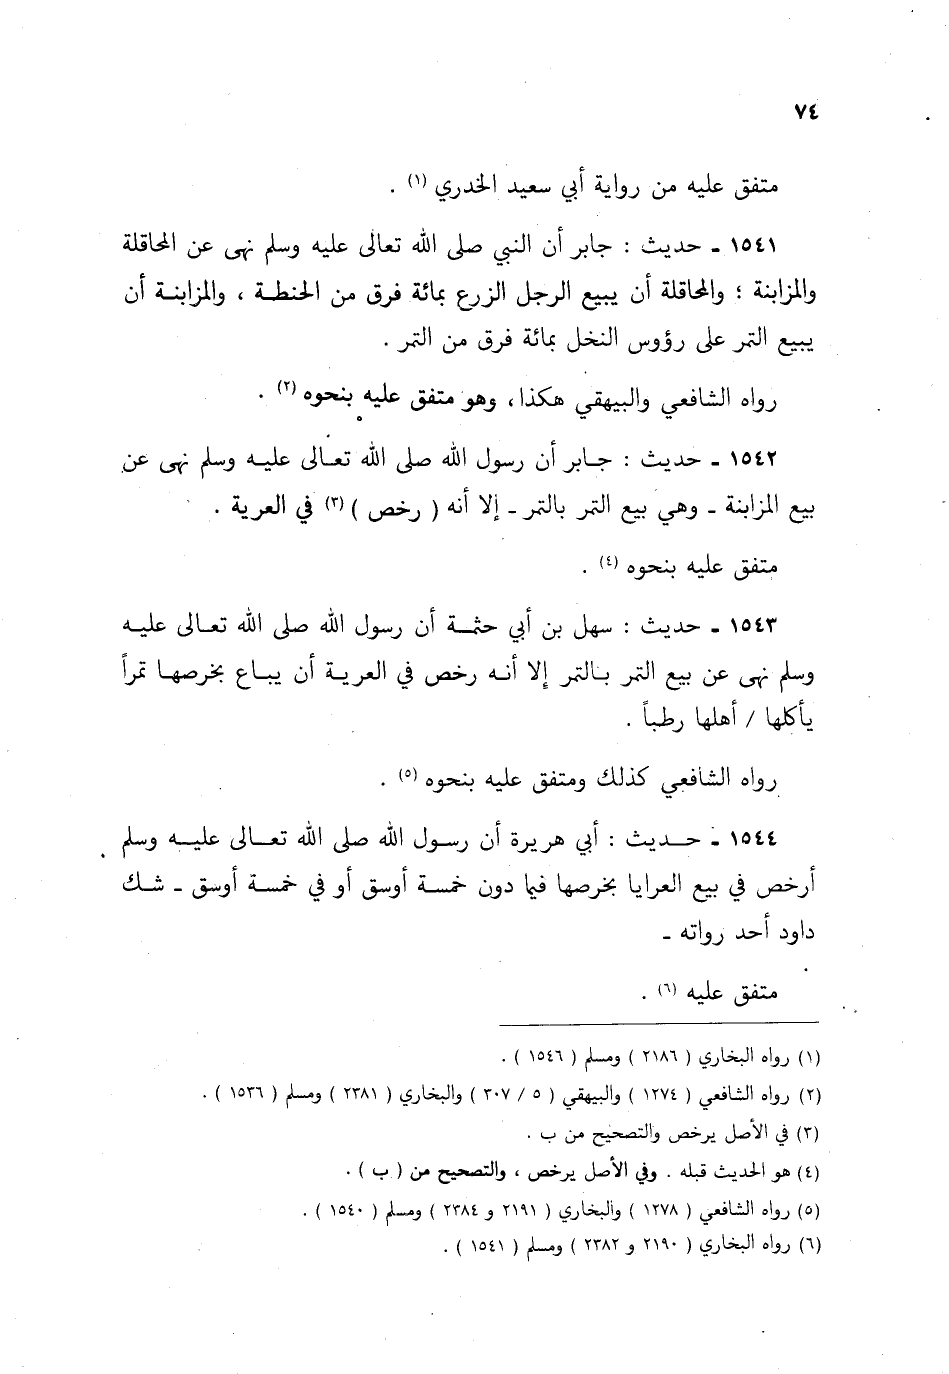 ٧٤
متفق عليه من رواية أبي سعيد الخدري (١) .
١٥٤١ ـ حديث : جابر أن النبي صلى الله تعالى عليه وسلم نهى عن المحاقلة
والمزابنة ؛ والمحاقلة أن يبيع الرجل الزرع بمائة فرق من الحنطة ، والمزابنة أن
يبيع التمر على رؤوس النخل بمائة فرق من التمر .
رواه الشافعي والبيهقي هكذا ، وهو متفق عليه بنحوه (٢) .
١٥٤٢ ـ حديث : جابر أن رسول الله صلى الله تعالى عليه وسلم نهى عن
بيع المزابنة ـ وهي بيع التمر بالتمر ـ إلا أنه ( رخص ) (٣) في العرية .
متفق عليه بنحوه (٤) .
١٥٤٣ ـ حديث : سهل بن أبي حثمة أن رسول الله صلى الله تعالى عليه
وسلم نهى عن بيع التمر بالتمر إلا أنه رخص في العرية أن يباع بخرصها تمراً
يأكلها / أهلها رطباً .
رواه الشافعي كذلك ومتفق عليه بنحوه (٥) .
١٥٤٤ ـ حديث : أبي هريرة أن رسول الله صلى الله تعالى عليه وسلم
أرخص في بيع العرايا بخرصها فيما دون خمسة أوسق أو في خمسة أوسق ـ شك
داود أحد رواته ـ
متفق عليه (٦) .
(١) رواه البخاري ( ٢١٨٦ ) ومسلم ( ١٥٤٦ ) .
(٢) رواه الشافعي ( ١٢٧٤ ) والبيهقي ( ٥ / ٣٠٧ ) والبخاري ( ٢٣٨١ ) ومسلم ( ١٥٣٦ ) .
(٣) في الأصل يرخص والتصحيح من ب .
(٤) هو الحديث قبله . وفي الأصل يرخص ، والتصحيح من ( ب ) .
(٥) رواه الشافعي ( ١٢٧٨ ) والبخاري ( ٢١٩١ و ٢٣٨٤ ) ومسلم ( ١٥٤٠ ) .
(٦) رواه البخاري ( ٢١٩٠ و ٢٣٨٢ ) ومسلم ( ١٥٤١ ) .